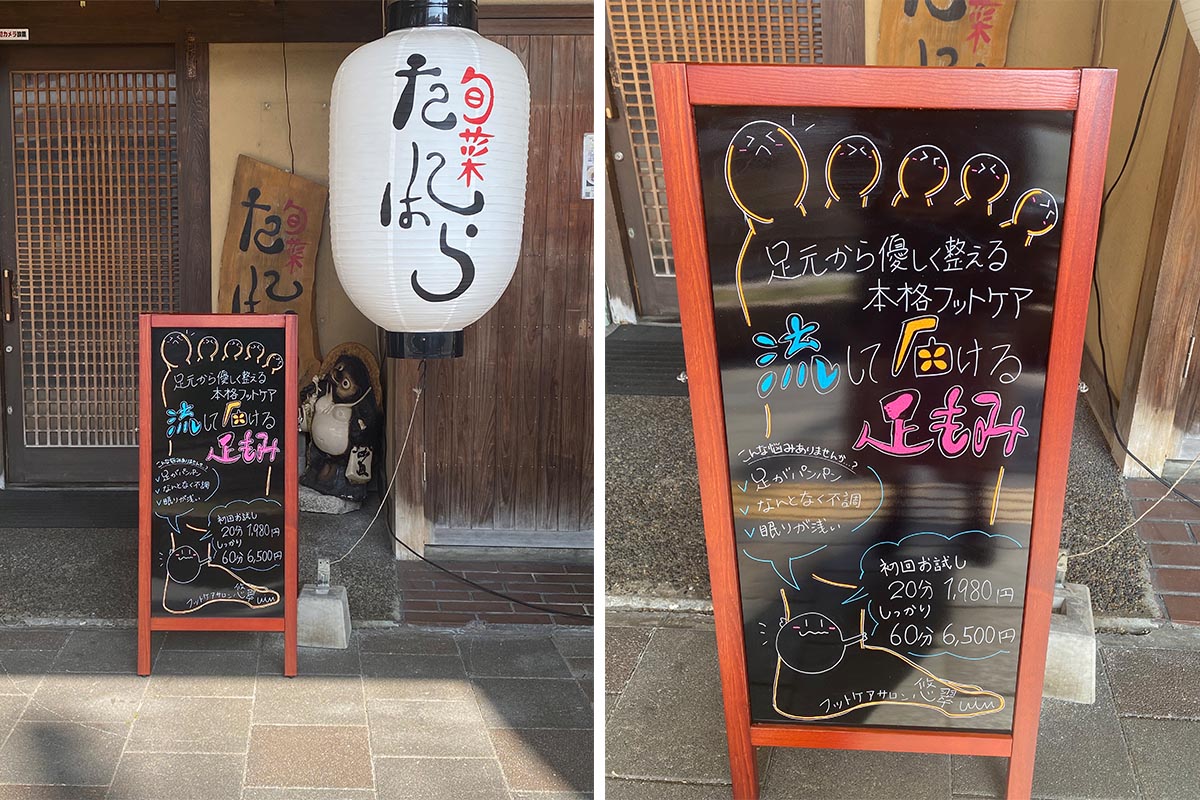 カメラ設置
旬菜
たにはら
旬菜
たに
足元から優しく整える
本格フットケア
流して届ける
足もみ
こんな悩みありませんか…?
✓足がパンパン
✓なんとなく不調
✓眠りが浅い
初回お試し
20分 1,980円
しっかり
60分 6,500円
フットケアサロン悠翠
旬菜
足元から優しく整える
本格フットケア
流して届ける
足もみ
こんな悩みありませんか…?
✓足がパンパン
✓なんとなく不調
✓眠りが浅い
初回お試し
20分 1,980円
しっかり
60分 6,500円
フットケアサロン悠翠